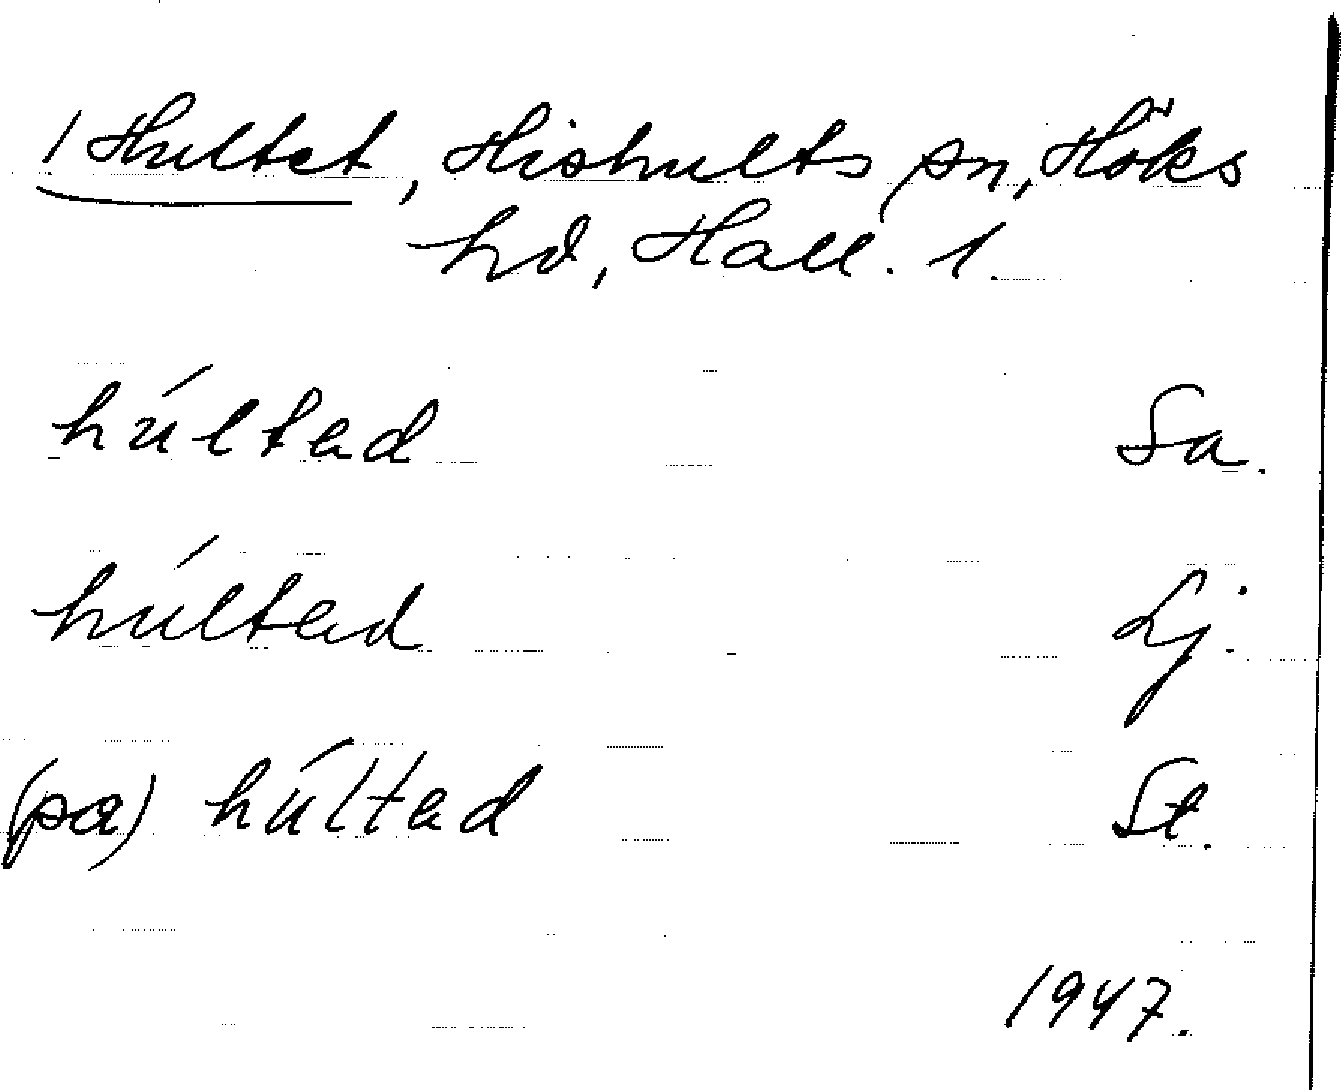 1 Hultet, Hishults sn, Höks
hd, Hall. l.
húltad Sa.
húltad Lj.
(pa) húltad St.
1947.